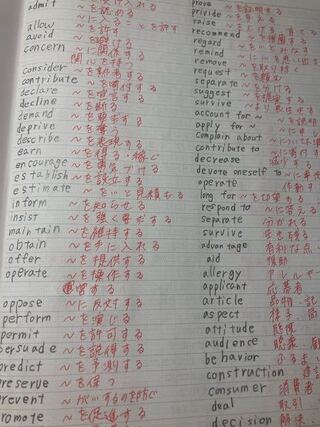 admit ~を受け入れる
~を認める
allow ~に~することを許す
~を許す
avoid ~を避ける
concern ~に関係する
関心を持つ
consider ~を熟考する
contribute ~を寄付する
declare ~を宣言する
decline ~を断る
demand ~を要求する
deprive ~を奪う
describe ~を表現する
earn ~を得る・稼ぐ
encourage ~を勇気づける
establish ~を設立する
estimate ~を~と見積もる
inform ~を知らせる
insist ~を強く要求する
maintain ~を維持する
obtain ~を手に入れる
offer ~を提供する
operate ~を操作する
運営する
oppose ~に反対する
perform ~を演じる
permit ~を許可する
persuade ~を説得する
predict ~を予測する
preserve ~を保つ
prevent
promote ~を促進する
prove ~を証明する
privide ~を与える
raise
recommend
regard ~を~とみなす
remind
remove ~を取り除く
request
separate
suggest
survive
account for ~
apply for ~
complain about
contribute to
decrease 減少する
devote oneself to ~に
operate 作動する
long for ~を切望する
respond to ~に答える
separate 分かれる
survive 生き残る
advantage 有利な点
aid 援助
allergy アレルギー
applicant 応募者
article 品物・記
aspect 様子・局
attitude 態度
audience 聴衆・観
behavior ふるまい
construction 建設
consumer 消費者
deal 取引
decision 解決